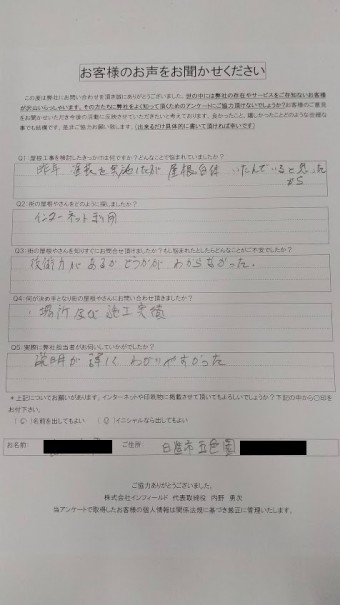 お客様のお声をお聞かせください
この度は弊社にお問い合わせを頂き誠にありがとうございました。世の中には弊社の存在やサービスをご存知ないお客様
が沢山いらっしゃいます。その方たちに弊社をよく知って頂くためのアンケートにご協力頂けないでしょうか?お客様のご意見
をお聞かせいただき今後の活動に反映させていただきたいと考えております。良かったこと、嬉しかったことどのような些細な
事でも結構です。是非ご協力お願い致します。(出来るだけ具体的に書いて頂ければ幸いです)
Q1:屋根工事を検討したきっかけは何ですか?どんなことで悩まれていましたか?
昨年、塗装を実施したが 屋根自体 いたんでいると思った
から
Q2:街の屋根やさんをどのように探しましたか?
インターネット利用
Q3:街の屋根やさんを知りすぐにお問合せ頂けましたか?もし悩まれたとしたらどんなことがご不安でしたか?
技術力があるかどうかが わからなかった。
Q4:何が決め手となり街の屋根やさんにお問い合わせ頂きましたか?
場所及び施工実績
Q5:実際に弊社担当者がお伺いしていかがでしたか?
説明が詳しく わかりやすかった
*上記についてお願いがあります。インターネットや印刷物に掲載させて頂いてもよろしいでしょうか?下記の中から○印を
お付下さい。
( )名前を出してもよい ( )イニシャルなら出してもよい
お名前: ご住所: 日進市五色園
ご協力ありがとうございました。
株式会社インフィールド 代表取締役 内野 勇次
当アンケートで取得したお客様の個人情報は関係法規に基づき厳正に管理いたします。